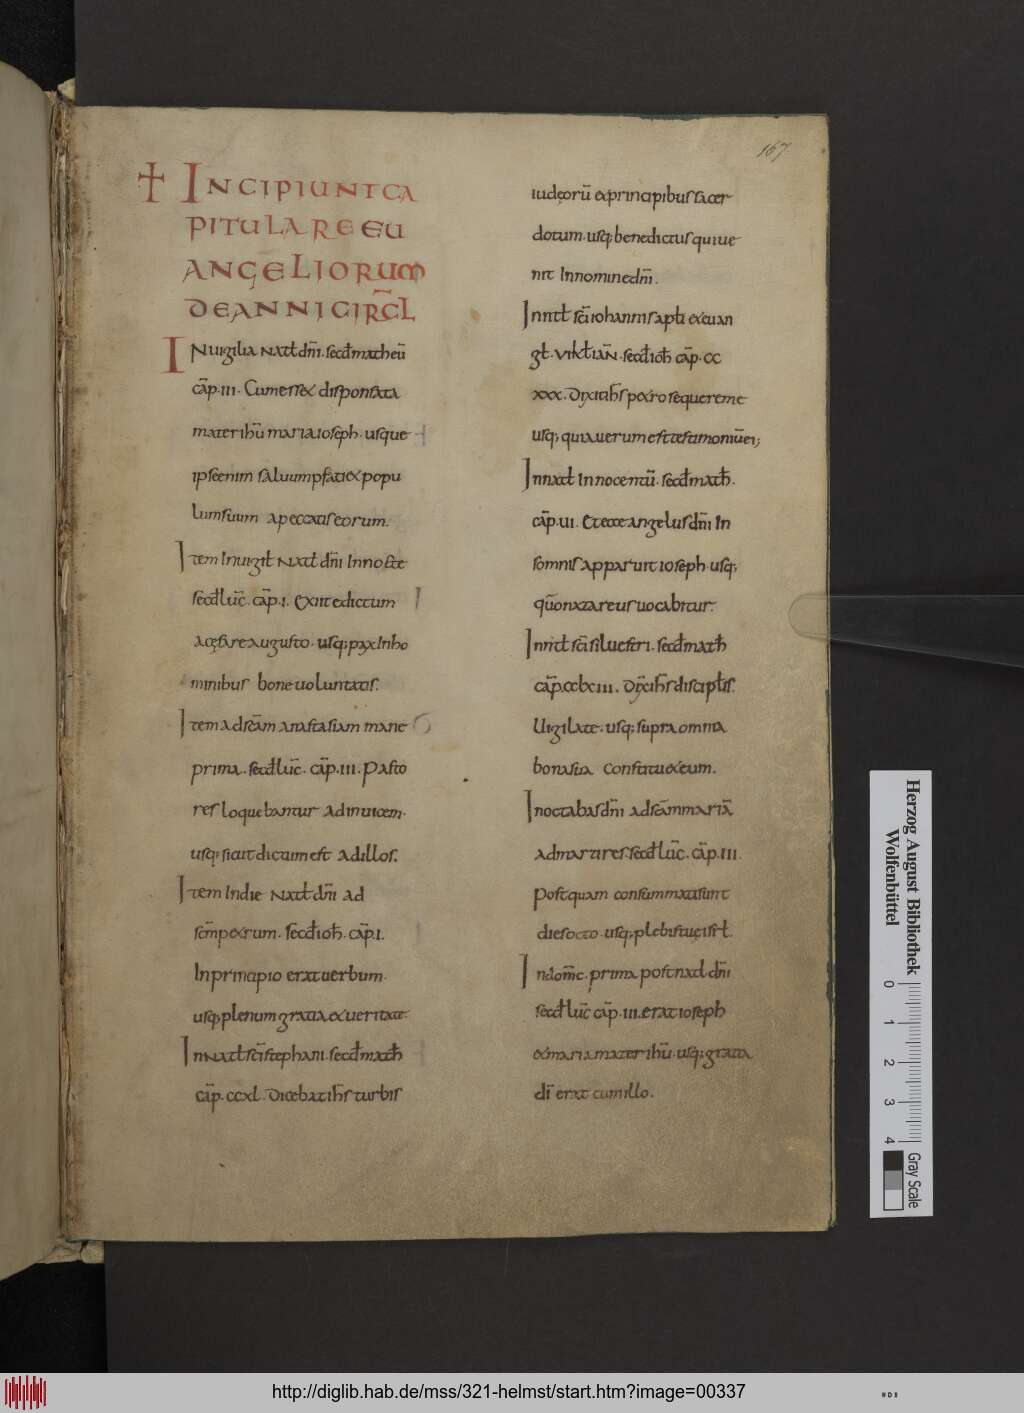 167
✝ INCIPIUNT CA
PITULARE EU
ANGELIORUM
DE ANNI CIRC̄L
IN uigilia Natł dn̄i. secd̄ matheū
cap̄. III. Cum essex disponsata
mater ihū maria ioseph. usque
ipse enim saluum p̱ fatiex popu
lum suum a peccatis eorum.
Item In uigił Natł dn̄i In nocte
secd̄ luc̄. cap̄. I. Exiit edictum
a cęsare augusto. usq; pax In ho
minibus bone uoluntatis.
Item ad scām anastasiam mane
prima. secd̄ luc̄. cap̄. III. Pasto
res loquebantur ad inuicem.
usq; sicut dictum est ad illos.
Item In die Natł dn̄i ad
scm̄ pexrum. secd̄ ioh̄. cap̄. I.
In principio erat uerbum.
usq; plenum gratia ex ueritate.
In Natł scī stephani. secd̄ math̄
cap̄. CCXL. Dicebat ih̄s turbis
iudęorū ex principibus sacer
dotum. usq; benedictus qui ue
nit In nomine dn̄i.
In natł scī iohannis apłi ex euan
gł. secd̄ ioh̄. cap̄. CC
XXX. Dixit ih̄s pexro sequere me
usq; quia uerum est testimoniū ei;
In natł Innocentū. secd̄ math̄.
cap̄. VI. Et ecce angelus dn̄i In
somnis apparuit ioseph. usq;
qūo nazareus uocabitur.
In natł scī siluestri. secd̄ math̄
cap̄. CCLXIII. Dix̄ ih̄s discipłis.
Uigilate. usq; supra omnia
bona sua constituex eum.
In octabas dn̄i ad scām mariā
ad martires. secd̄ luc̄. cap̄. III.
Postquam consummati sunt
dies octo. usq; plebis tuę isrł.
In dom̄c. prima post nał. dn̄i
secd̄ luc̄ cap̄. III. erat ioseph
ex maria mater ihū. usq; gratia
dī erat cum illo.
Herzog August Bibliothek
Wolfenbüttel
0 1 2 3 4
Gray Scale
http://diglib.hab.de/mss/321-helmst/start.htm?image=00337